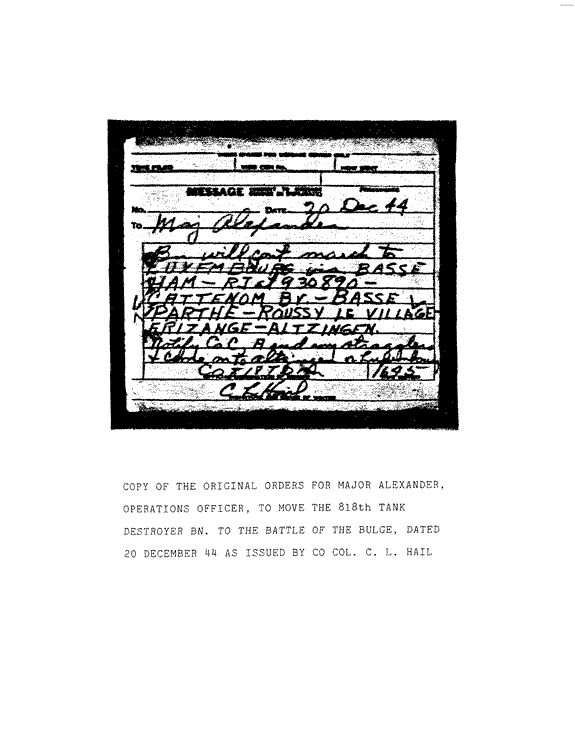 MESSAGE
No. DATE 20 Dec 44
To Maj Alexander
Bn will cont march to
LUXEMBOURG via BASSE
HAM - RT at 930890 -
CATTENOM BY - BASSE
PARTHE - ROUSSY LE VILLAGE
ERIZANGE - ALTZINGEN.
Notify Co C, A and any stragglers
& come on to
1645
COPY OF THE ORIGINAL ORDERS FOR MAJOR ALEXANDER,
OPERATIONS OFFICER, TO MOVE THE 818th TANK
DESTROYER BN. TO THE BATTLE OF THE BULGE, DATED
20 DECEMBER 44 AS ISSUED BY CO COL. C. L. HAIL